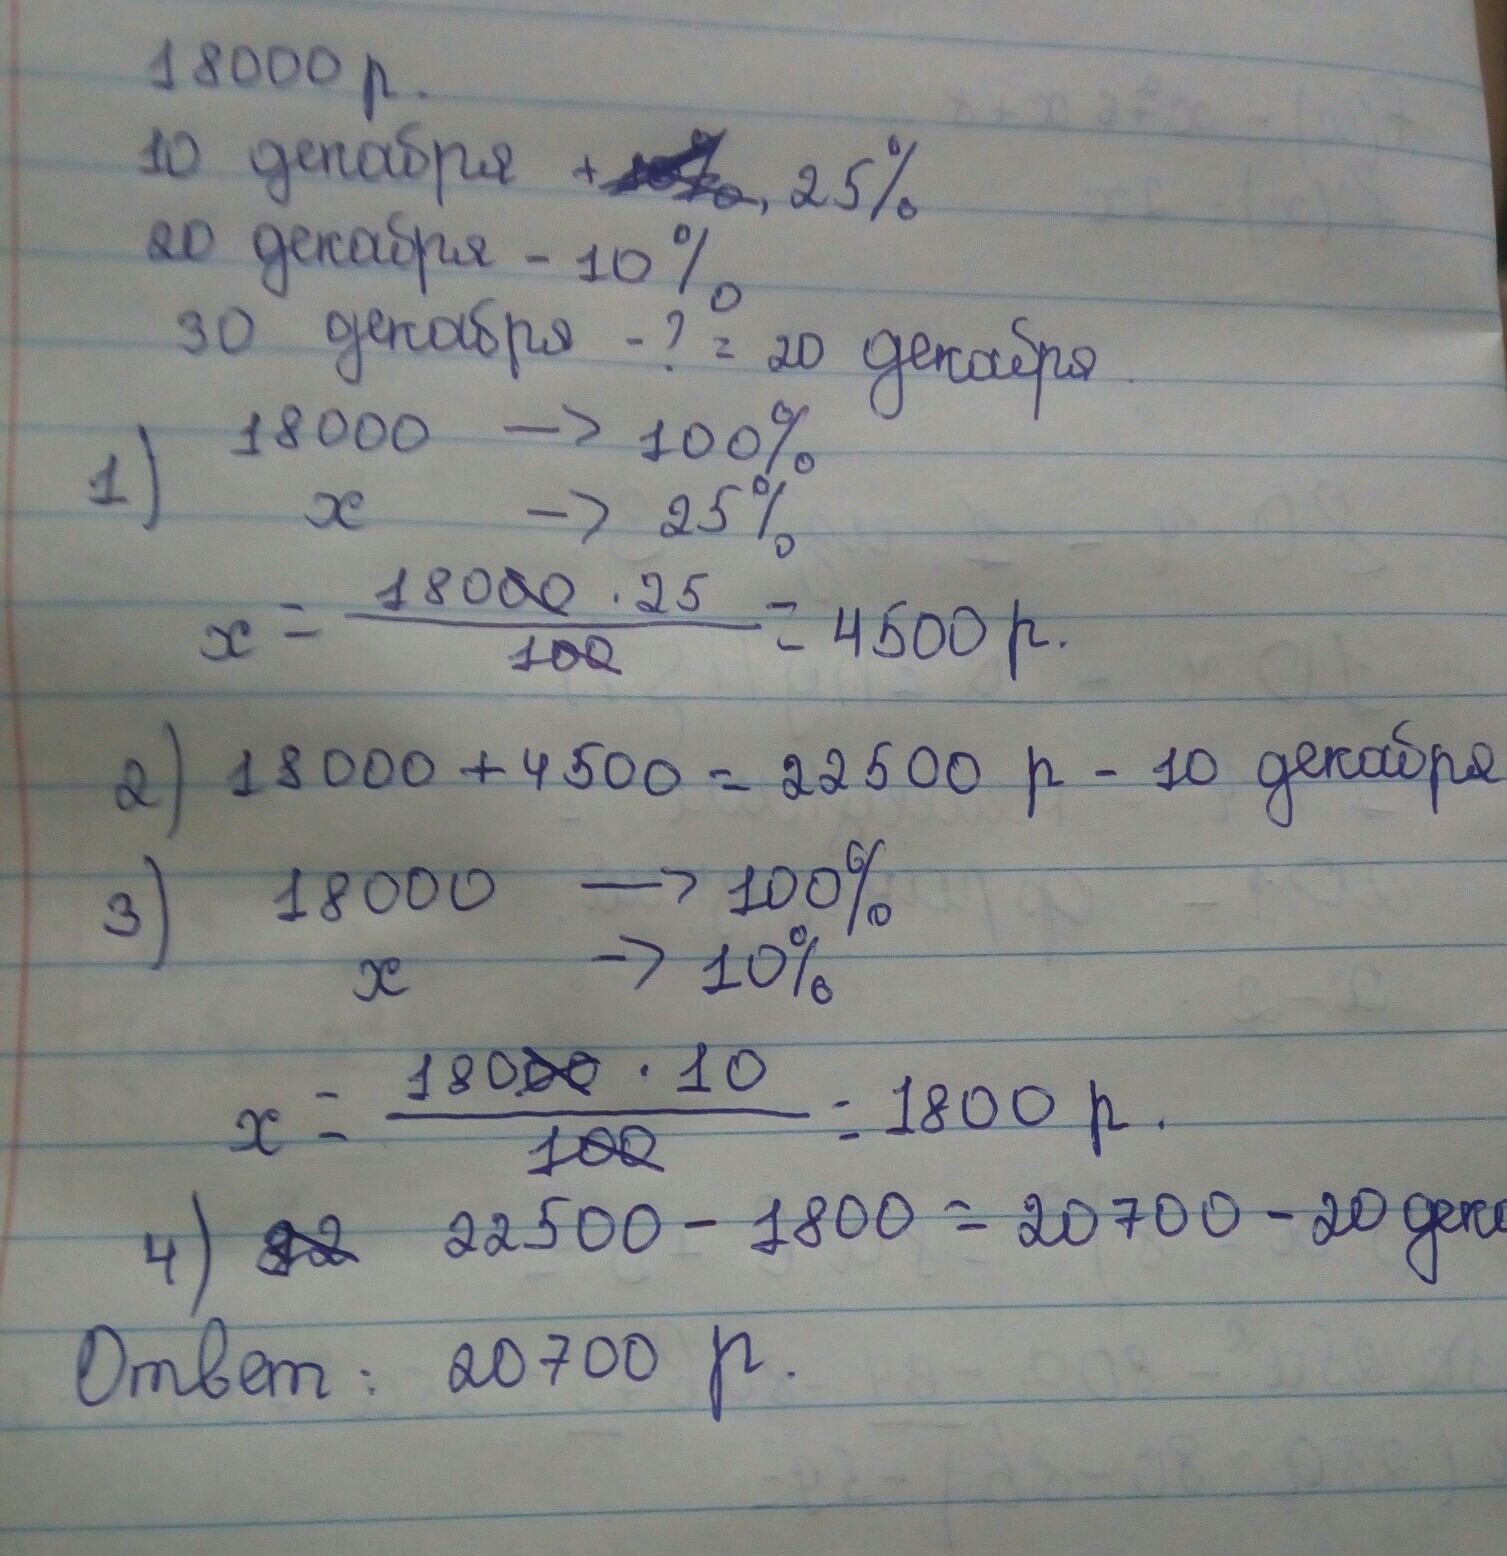 18000 р.
10 декабря + 25%
20 декабря - 10%
30 декабря - ? = 20 декабря.
1) 18000 —> 100%
x —> 25%
x = 18000 · 25 / 100 = 4500 р.
2) 18000 + 4500 = 22500 р - 10 декабря
3) 18000 —> 100%
x —> 10%
x = 18000 · 10 / 100 = 1800 р.
4) 22500 - 1800 = 20700 - 20 дека
Ответ: 20700 р.